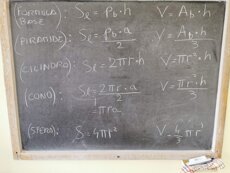 (FORMULA BASE): Sℓ = Pb·h V = Ab·h
(PIRAMIDE): Sℓ = Pb·a/2 V = Ab·h/3
(CILINDRO): Sℓ = 2πr·h V = πr²·h
(CONO): Sℓ = 2πr·a/2 V = πr²·h/3
= πra
(SFERA): S = 4πr² V = 4/3 πr³